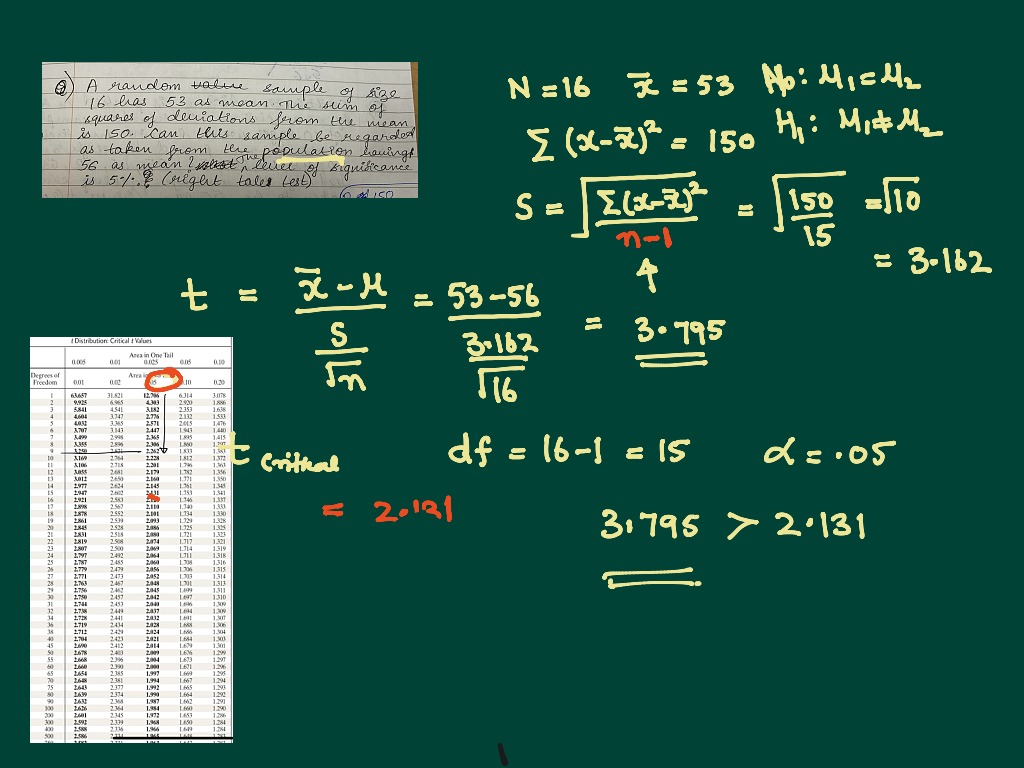 Q) A random value sample of size
16 has 53 as mean. The sum of
squares of deviations from the mean
is 150. Can this sample be regarded
as taken from the population having
56 as mean? The level of significance
is 5%. (right tales test)
N = 16 x̄ = 53 H₀: μ₁ = μ₂
Σ(x-x̄)² = 150 H₁: μ₁ ≠ μ₂
S = √(Σ(x-x̄)² / n-1) = √(150/15) = √10
= 3.162
t = (x̄ - μ) / (S/√n) = (53-56) / (3.162/√16) = 3.795
t critical
= 2.131
df = 16-1 = 15 α = .05
3.795 > 2.131
t Distribution: Critical t Values
Area in One Tail
0.005 0.01 0.025 0.05 0.10
Degrees of
Freedom 0.01 0.02 .05 .10 0.20
1 63.657 31.821 12.706 6.314 3.078
2 9.925 6.965 4.303 2.920 1.886
3 5.841 4.541 3.182 2.353 1.638
4 4.604 3.747 2.776 2.132 1.533
5 4.032 3.365 2.571 2.015 1.476
6 3.707 3.143 2.447 1.943 1.440
7 3.499 2.998 2.365 1.895 1.415
8 3.355 2.896 2.306 1.860 1.397
9 3.250 2.821 2.262 1.833 1.383
10 3.169 2.764 2.228 1.812 1.372
11 3.106 2.718 2.201 1.796 1.363
12 3.055 2.681 2.179 1.782 1.356
13 3.012 2.650 2.160 1.771 1.350
14 2.977 2.624 2.145 1.761 1.345
15 2.947 2.602 2.131 1.753 1.341
16 2.921 2.583 1.746 1.337
17 2.898 2.567 2.110 1.740 1.333
18 2.878 2.552 2.101 1.734 1.330
19 2.861 2.539 2.093 1.729 1.328
20 2.845 2.528 2.086 1.725 1.325
21 2.831 2.518 2.080 1.721 1.323
22 2.819 2.508 2.074 1.717 1.321
23 2.807 2.500 2.069 1.714 1.319
24 2.797 2.492 2.064 1.711 1.318
25 2.787 2.485 2.060 1.708 1.316
26 2.779 2.479 2.056 1.706 1.315
27 2.771 2.473 2.052 1.703 1.314
28 2.763 2.467 2.048 1.701 1.313
29 2.756 2.462 2.045 1.699 1.311
30 2.750 2.457 2.042 1.697 1.310
31 2.744 2.453 2.040 1.696 1.309
32 2.738 2.449 2.037 1.694 1.309
34 2.728 2.441 2.032 1.691 1.307
36 2.719 2.434 2.028 1.688 1.306
38 2.712 2.429 2.024 1.686 1.304
40 2.704 2.423 2.021 1.684 1.303
45 2.690 2.412 2.014 1.679 1.301
50 2.678 2.403 2.009 1.676 1.299
55 2.668 2.396 2.004 1.673 1.297
60 2.660 2.390 2.000 1.671 1.296
65 2.654 2.385 1.997 1.669 1.295
70 2.648 2.381 1.994 1.667 1.294
75 2.643 2.377 1.992 1.665 1.293
80 2.639 2.374 1.990 1.664 1.292
90 2.632 2.368 1.987 1.662 1.291
100 2.626 2.364 1.984 1.660 1.290
200 2.601 2.345 1.972 1.653 1.286
300 2.592 2.339 1.968 1.650 1.284
400 2.588 2.336 1.966 1.649 1.284
500 2.586